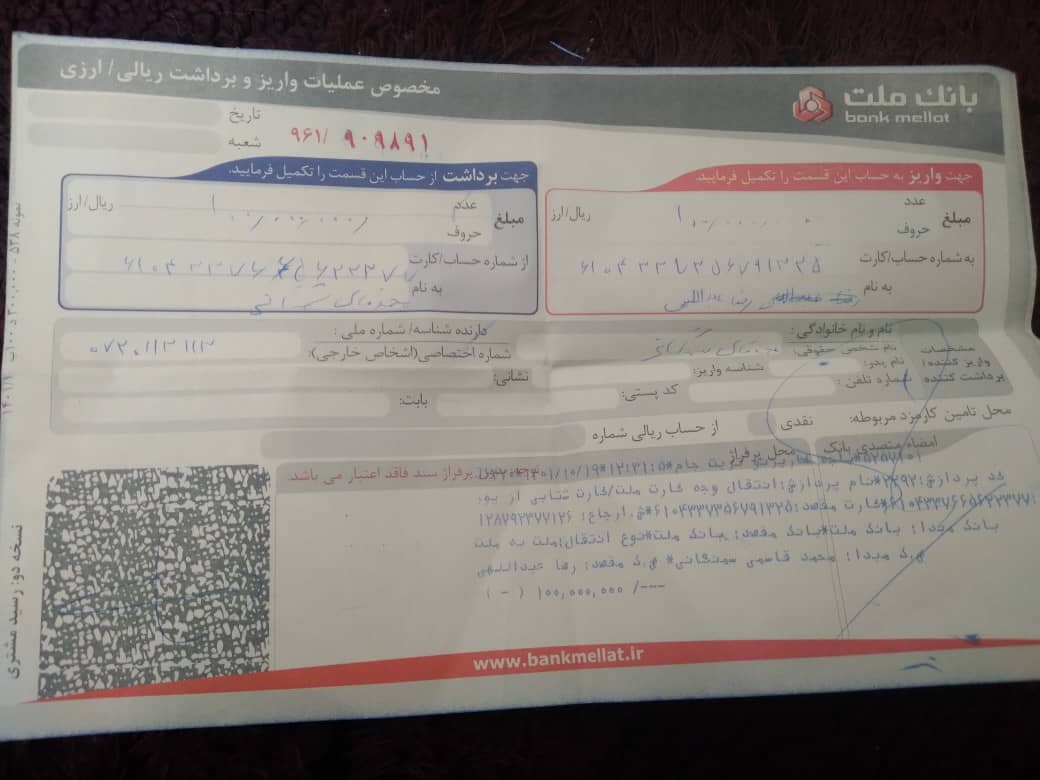 بانک ملت
bank mellat
مخصوص عملیات واریز و برداشت ریالی/ ارزی
تاریخ
شعبه
۹۶۱/ ۹۰۹۸۹۱
جهت واریز به حساب این قسمت را تکمیل فرمایید.
مبلغ
عدد ۱۰۰,۰۰۰,۰۰۰ ریال/ارز
حروف
به شماره حساب/کارت ۶۱۰۴۳۳۷۳۵۶۷۹۱۳۲۵
به نام رضا عبداللهی
جهت برداشت از حساب این قسمت را تکمیل فرمایید.
مبلغ
عدد ۱۰۰,۰۰۰,۰۰۰ ریال/ارز
حروف
از شماره حساب/کارت
به نام
مشخصات واریز کننده/ برداشت کننده
نام و نام خانوادگی:
نام شخص حقوقی:
دارنده شناسه/ شماره ملی:
شماره اختصاصی(اشخاص خارجی):
۰۷۲۰۱۱۲۱۱۲
نام پدر:
شناسه واریز:
نشانی:
شماره تلفن:
کد پستی:
بابت:
محل تامین کارمزد مربوطه: نقدی از حساب ریالی شماره
امضاء متصدی بانک
محل پرفراژ
پرفراژ سند فاقد اعتبار می باشد.
۱۴۰۱/۱۰/۱۹*۱۲:۳۱:۵
کد پردازش:۲۲۹۲*نام پردازش:انتقال وجه کارت ملت/کارت شتابی از بو:
۶۱۰۴۳۳۷۶۶۵۶۲۳۳۷۷*کارت مقصد:۶۱۰۴۳۳۷۳۵۶۷۹۱۳۲۵*ش.ارجاع: ۱۲۸۷۹۲۳۷۷۱۲۶
بانک مبدا: بانک ملت*بانک مقصد: بانک ملت*نوع انتقال:ملت به ملت
م.ک مبدا: محمد قاسمی سمنگانی* م.ک مقصد: رضا عبداللهی
( - ) ۱۰۰,۰۰۰,۰۰۰ /---
نسخه دو: رسید مشتری
www.bankmellat.ir